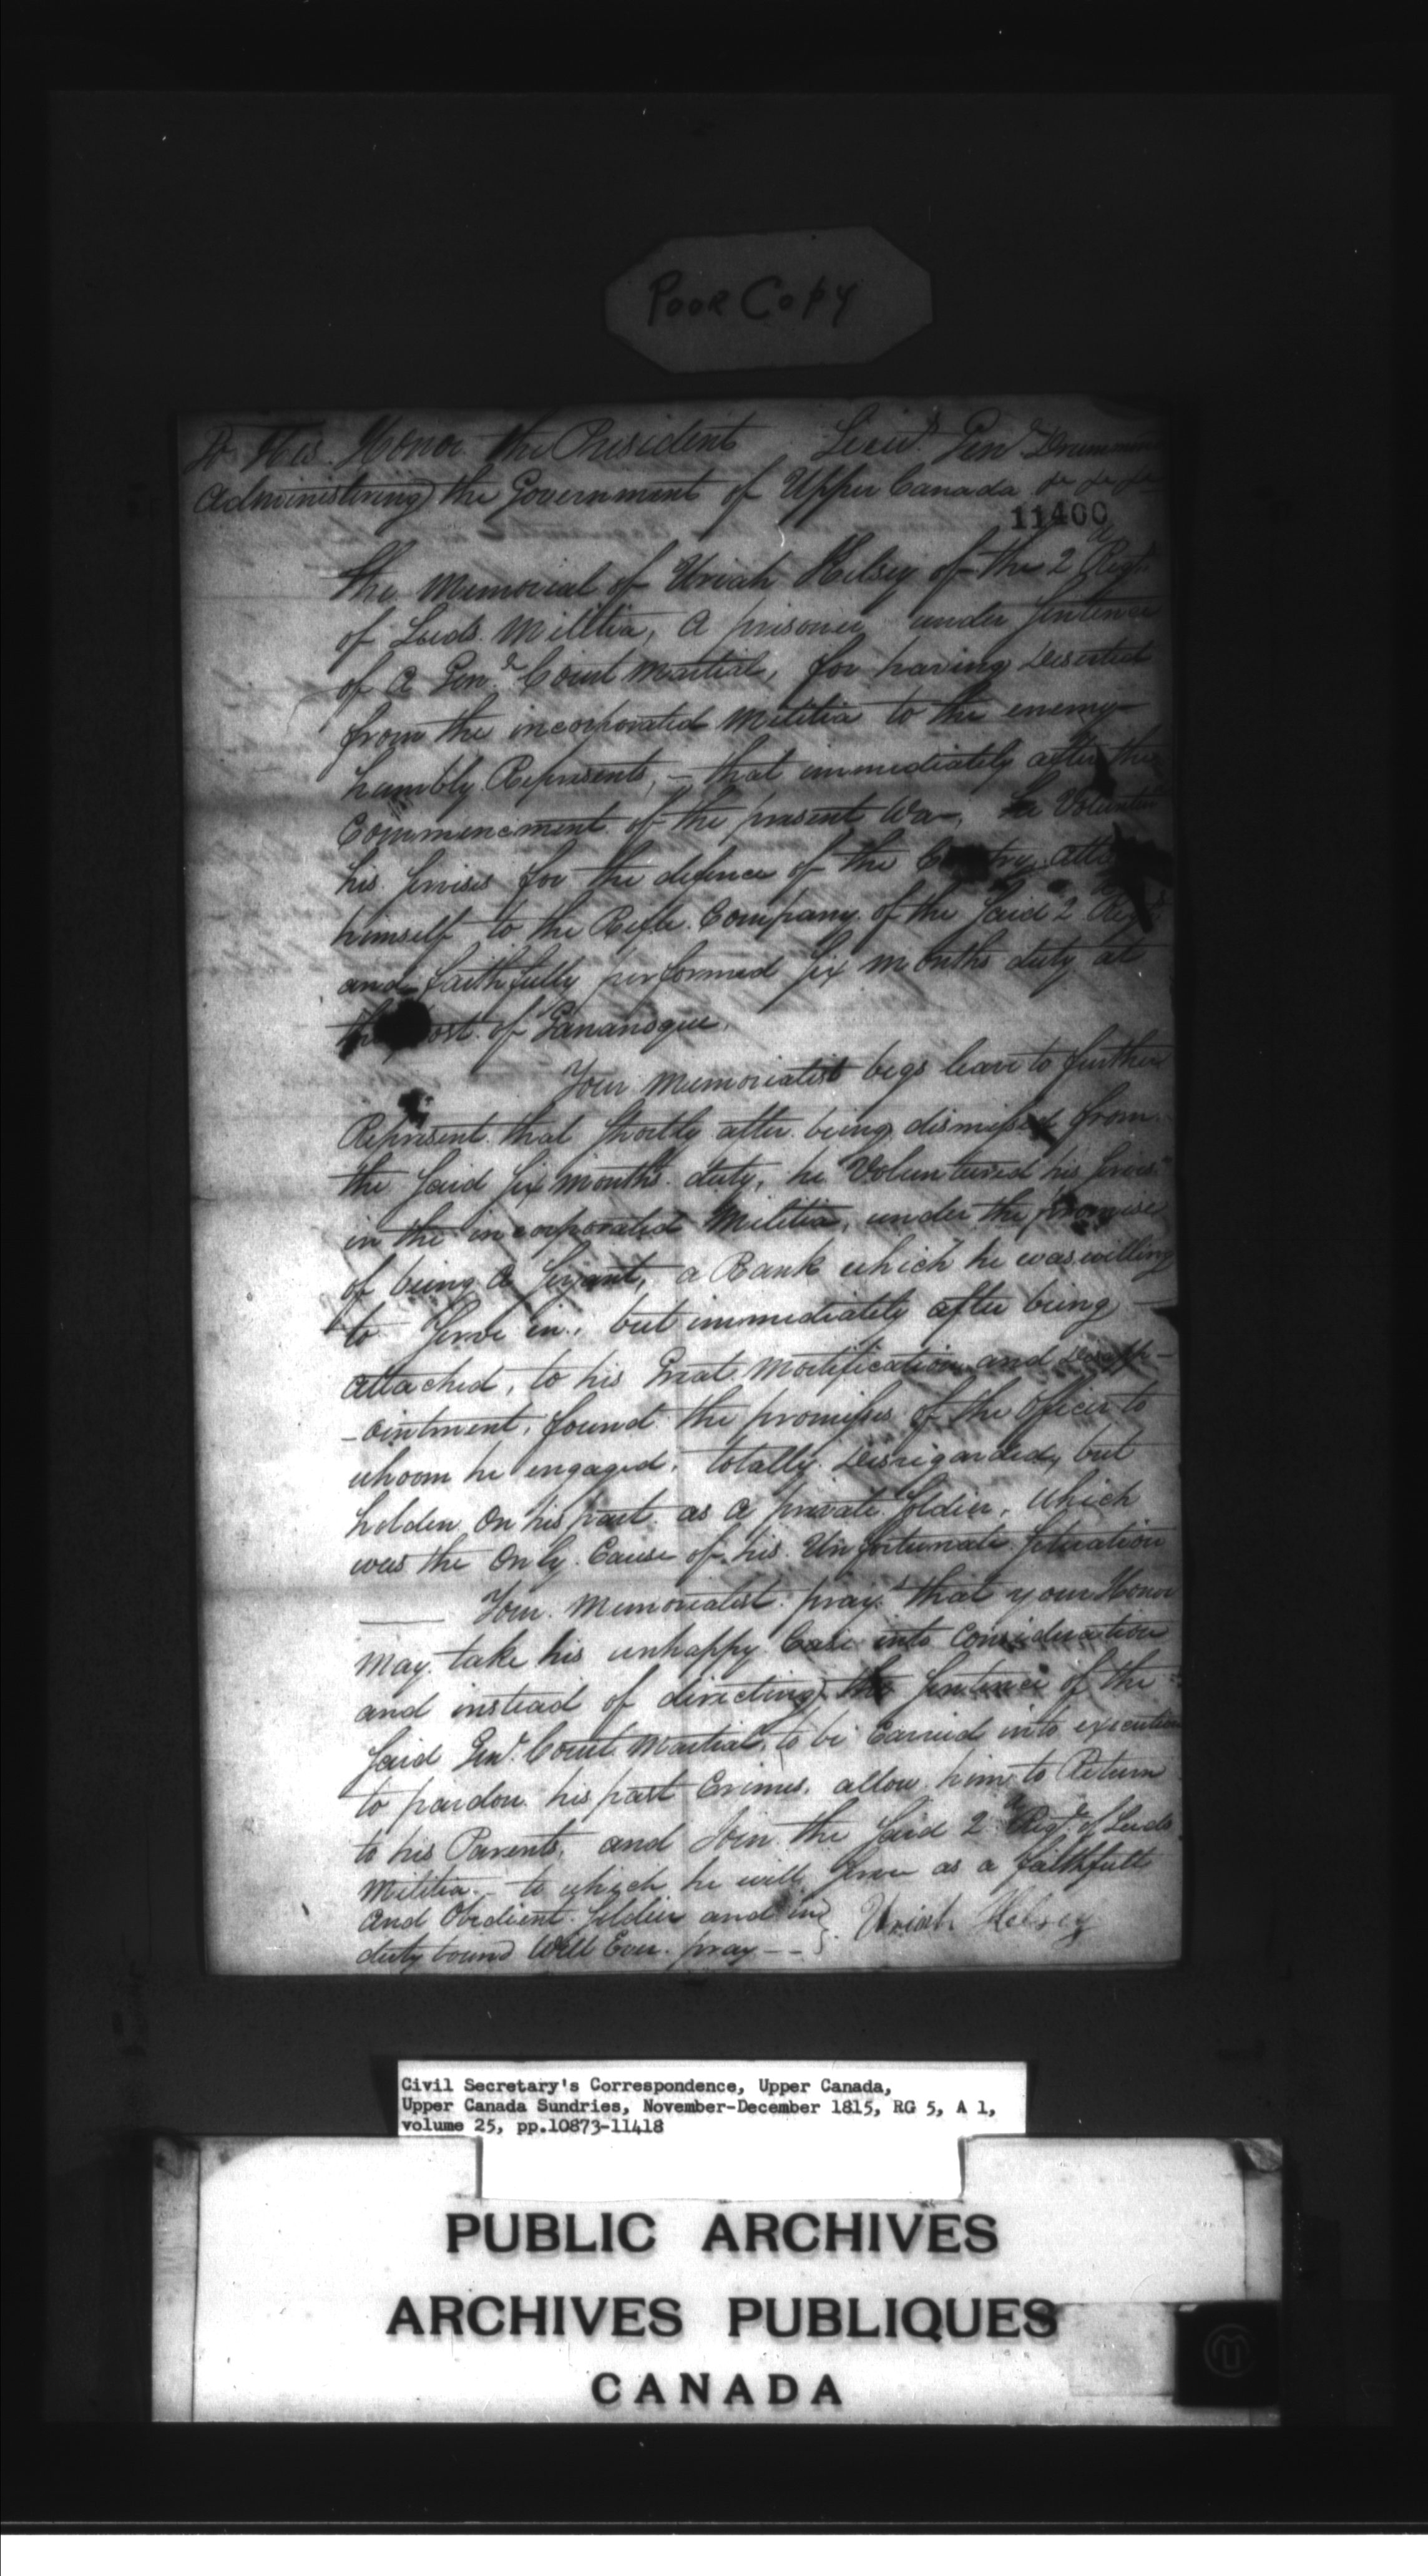 Poor Copy
To His Honor the President Lieut. Genl. Drummond
Administering the Government of Upper Canada &c &c &c
11400
The Memorial of Uriah Kelsey of the 2d Regt.
of Leeds Militia, A prisoner under Sentence
of A Genl. Court Martial, for having Deserted
from the incorporated Militia to the enemy
humbly Represents, - that immediately after the
Commencment of the present War, he Volunteer
his Servises for the defence of the Country
himself to the Rifle Company of the Said 2d Regt.
and faithfully performed Six months duty at
the post of Gananoque.
Your Memorialist begs leave to further
Represent that Shortly after being dismissed from
the Said Six Months duty, he Volunteered his
in the incorporated Militia, under the promise
of being A Serjant, a Rank which he was willing
to Serve in, but immediately after being
attached, to his Great Mortification and Disapp-
-ointment, found the promisses of the Officer to
whoom he engaged, totally Disrigarded, but
holden On his part as a private Soldier, which
was the Only Cause of his Unfortunate Situation
Your Memorialist pray that your Honor
May take his unhappy Case into Consideration
and instead of directing the Sentence of the
Said Genl. Court Martial to be Carried into execution
to pardon his past Crimes, allow him to Return
to his Parents, and Join the Said 2d Regt. of Leeds
Militia - to which he will Serve as a faithfull
And Obedient Soldier and in
duty bound Will Ever pray -- Uriah Kelsey
Civil Secretary's Correspondence, Upper Canada,
Upper Canada Sundries, November-December 1815, RG 5, A 1,
volume 25, pp.10873-11418
PUBLIC ARCHIVES
ARCHIVES PUBLIQUES
CANADA